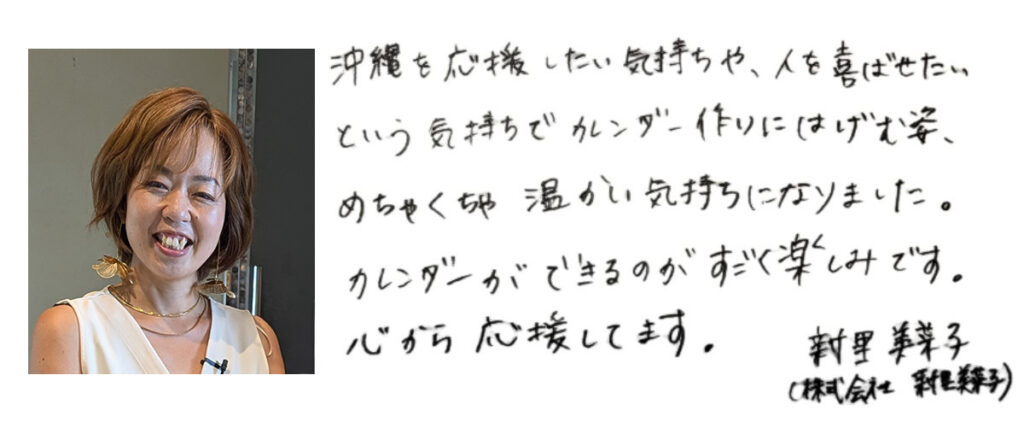 沖縄を応援したい気持ちや、人を喜ばせたい
という気持ちでカレンダー作りにはげむ姿、
めちゃくちゃ温かい気持ちになりました。
カレンダーができるのがすごく楽しみです。
心から応援してます。
新里美菜子
(株式会社 新里美菜子)